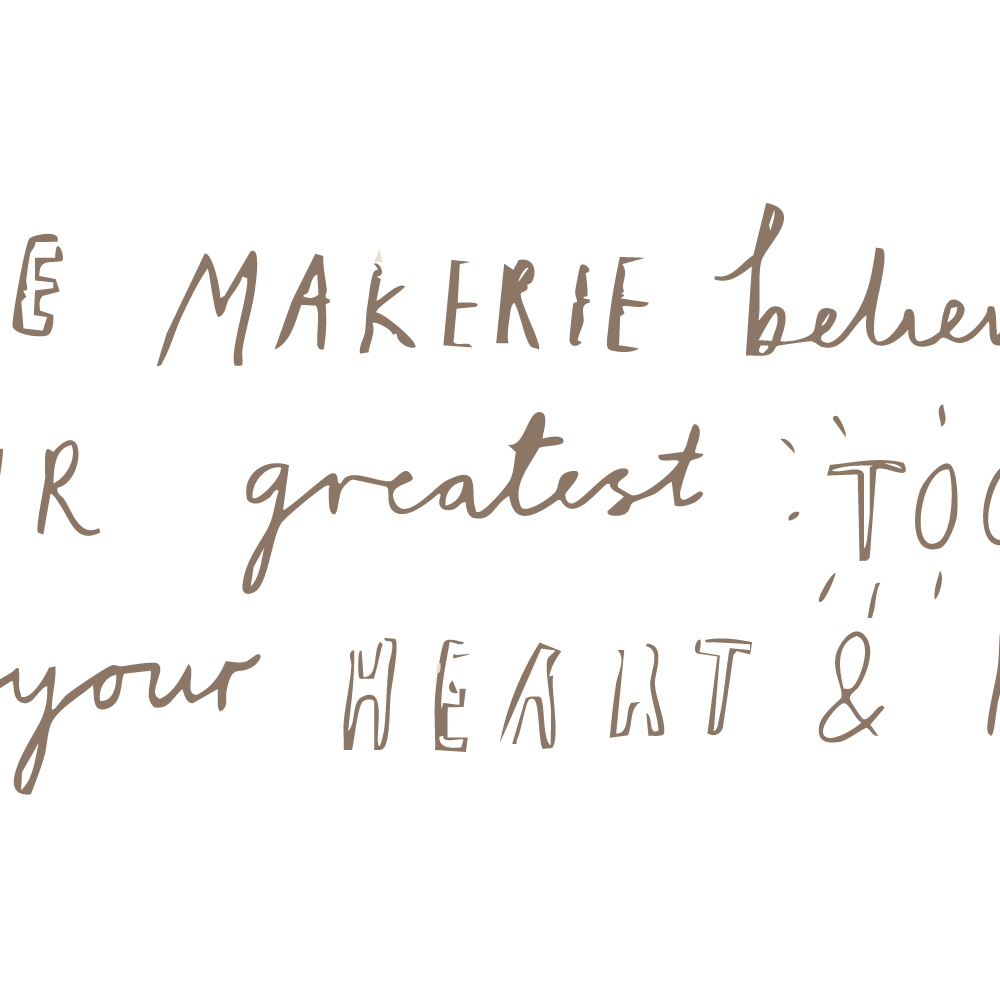 E MAKERIE believ
R greatest TOO
your HEART &